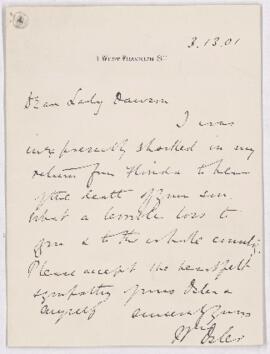 1 West Franklin St.
3.13.01
Dear Lady Dawson
I was
inexpressibly shocked in my
return from Florida to hear
of the death of your son.
What a terrible loss to
you & to the whole country.
Please accept the heartfelt
sympathy of Mrs Osler &
myself
Sincerely yours
Wm Osler